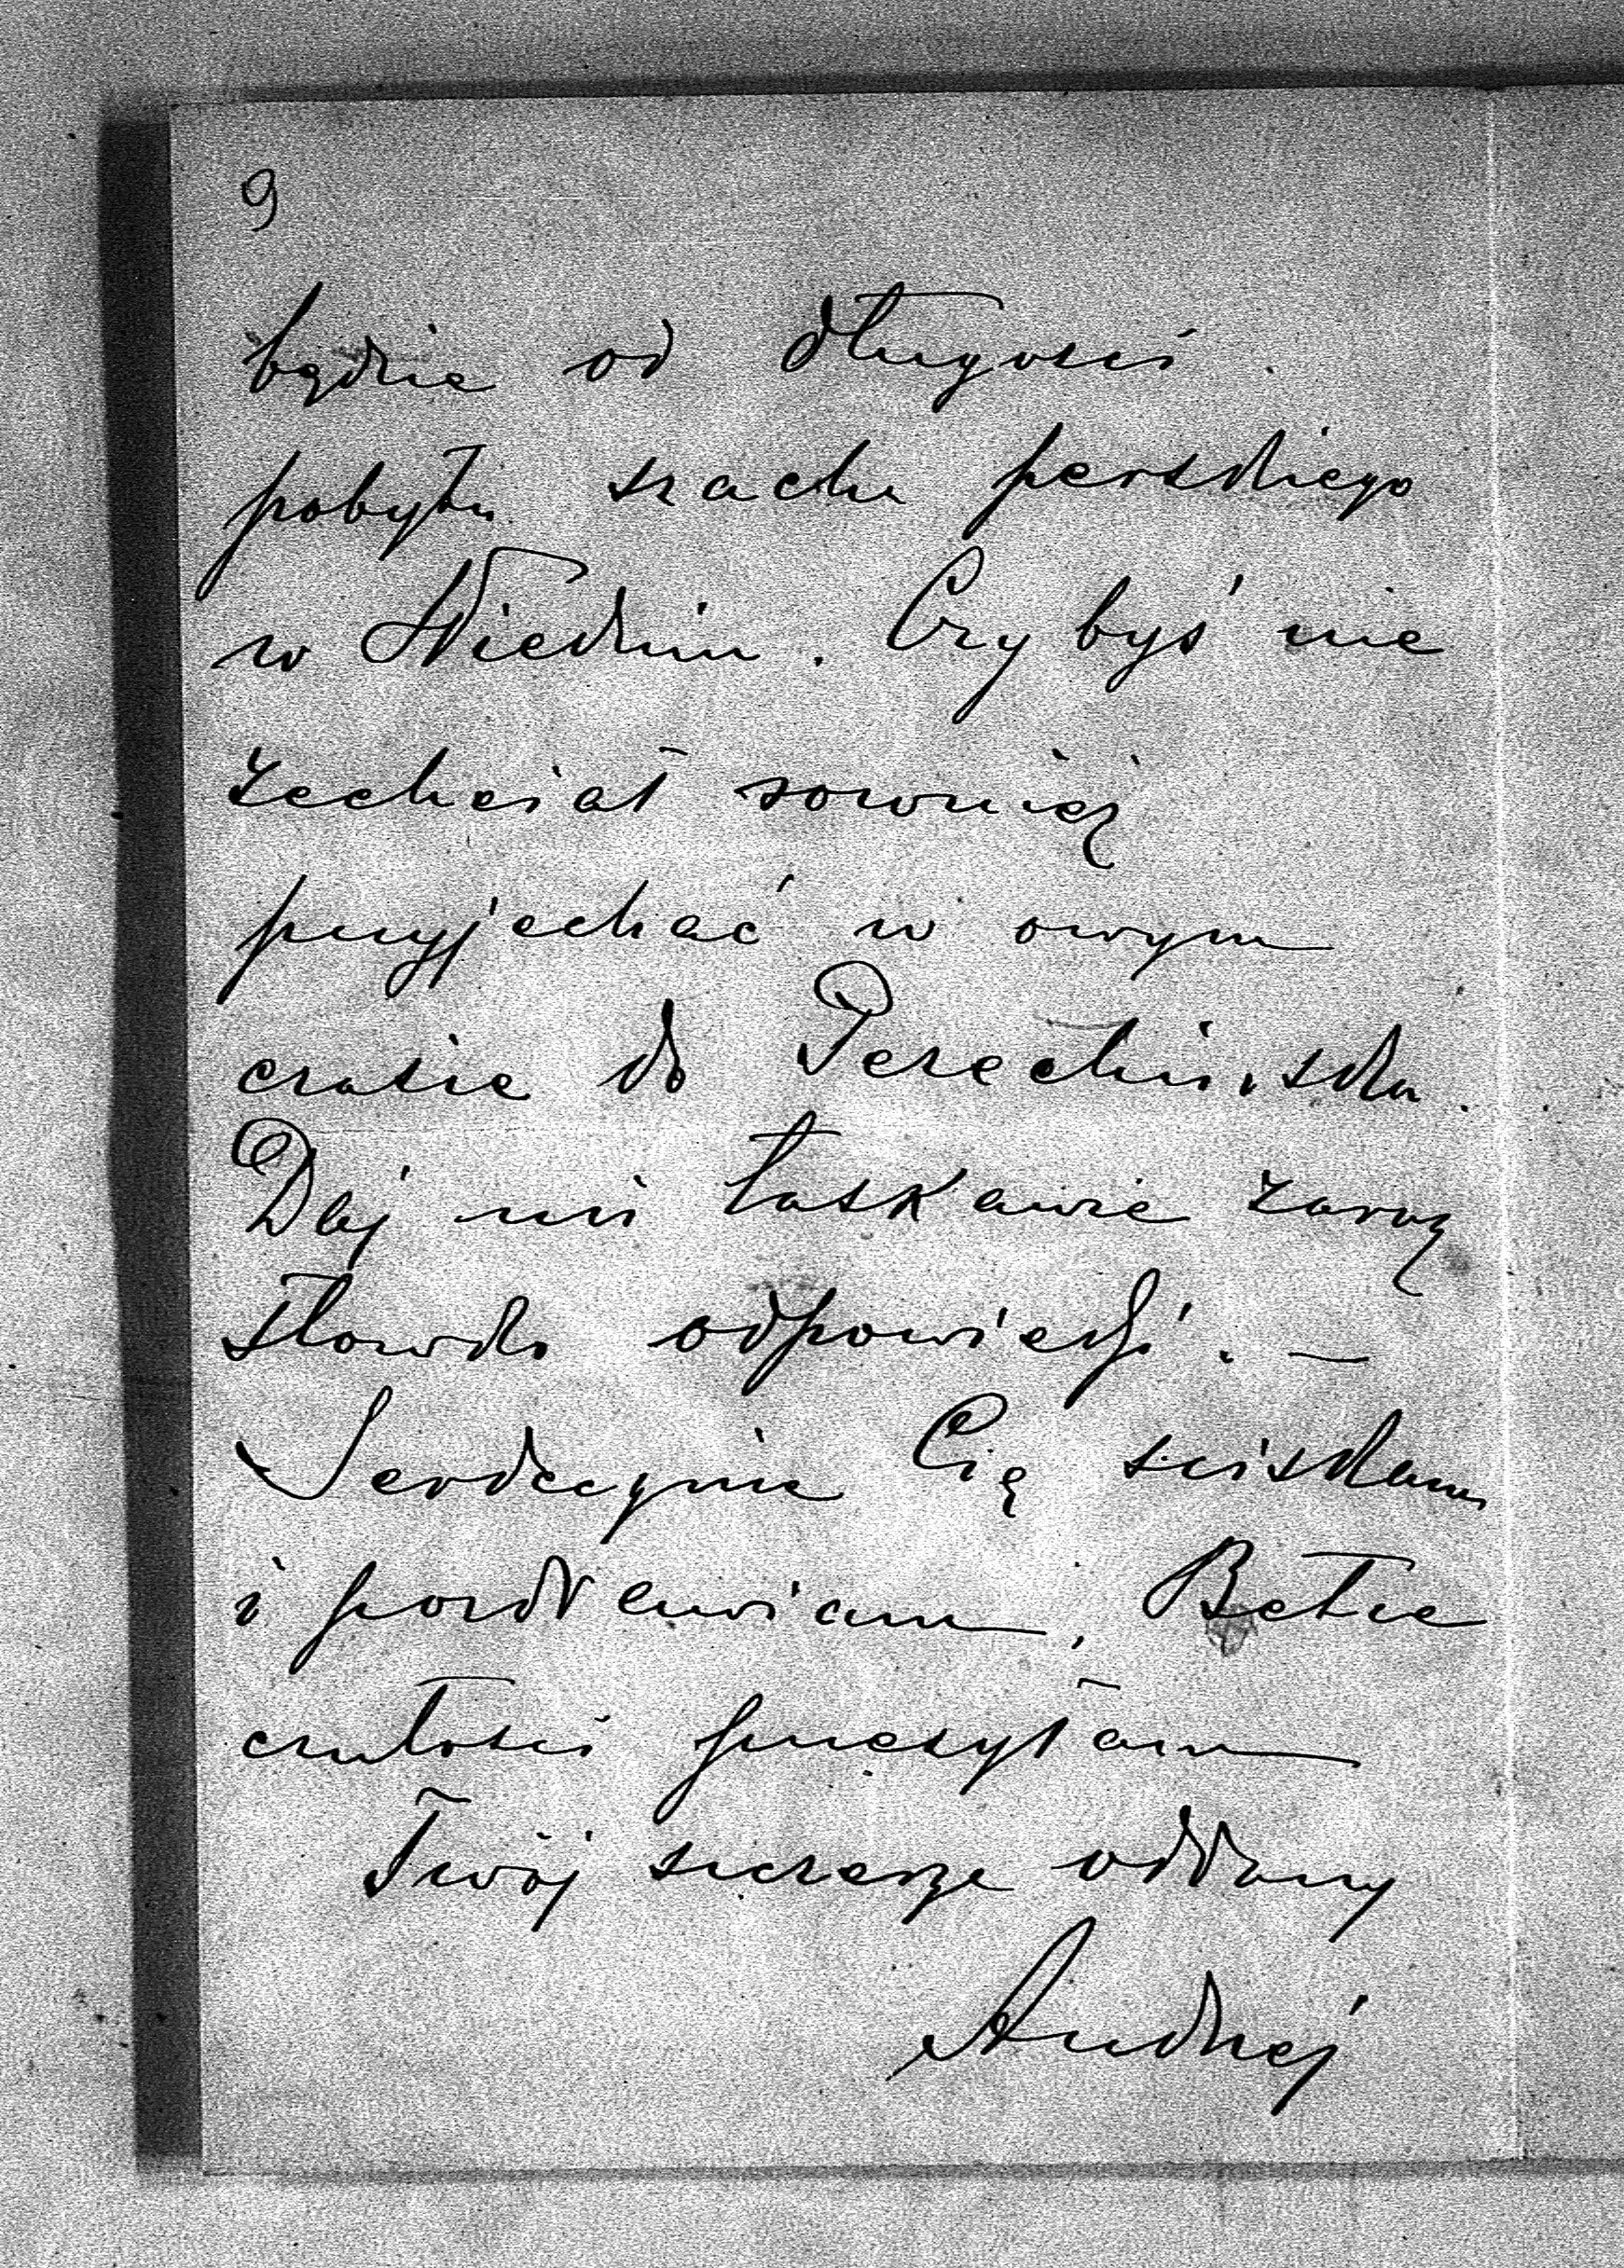 9
będzie od długości
pobytu szacha perskiego
w Wiedniu. Czy byś nie
zechciał rownież
przyjechać w owym
czasie do Perehińska.
Daj mi łaskawie zaraz
słowko odpowiedzi. —
Serdecznie Cię sciskam
i pozdrawiam,
czułości przesyłam
Twój szczerze oddany
Andrzej